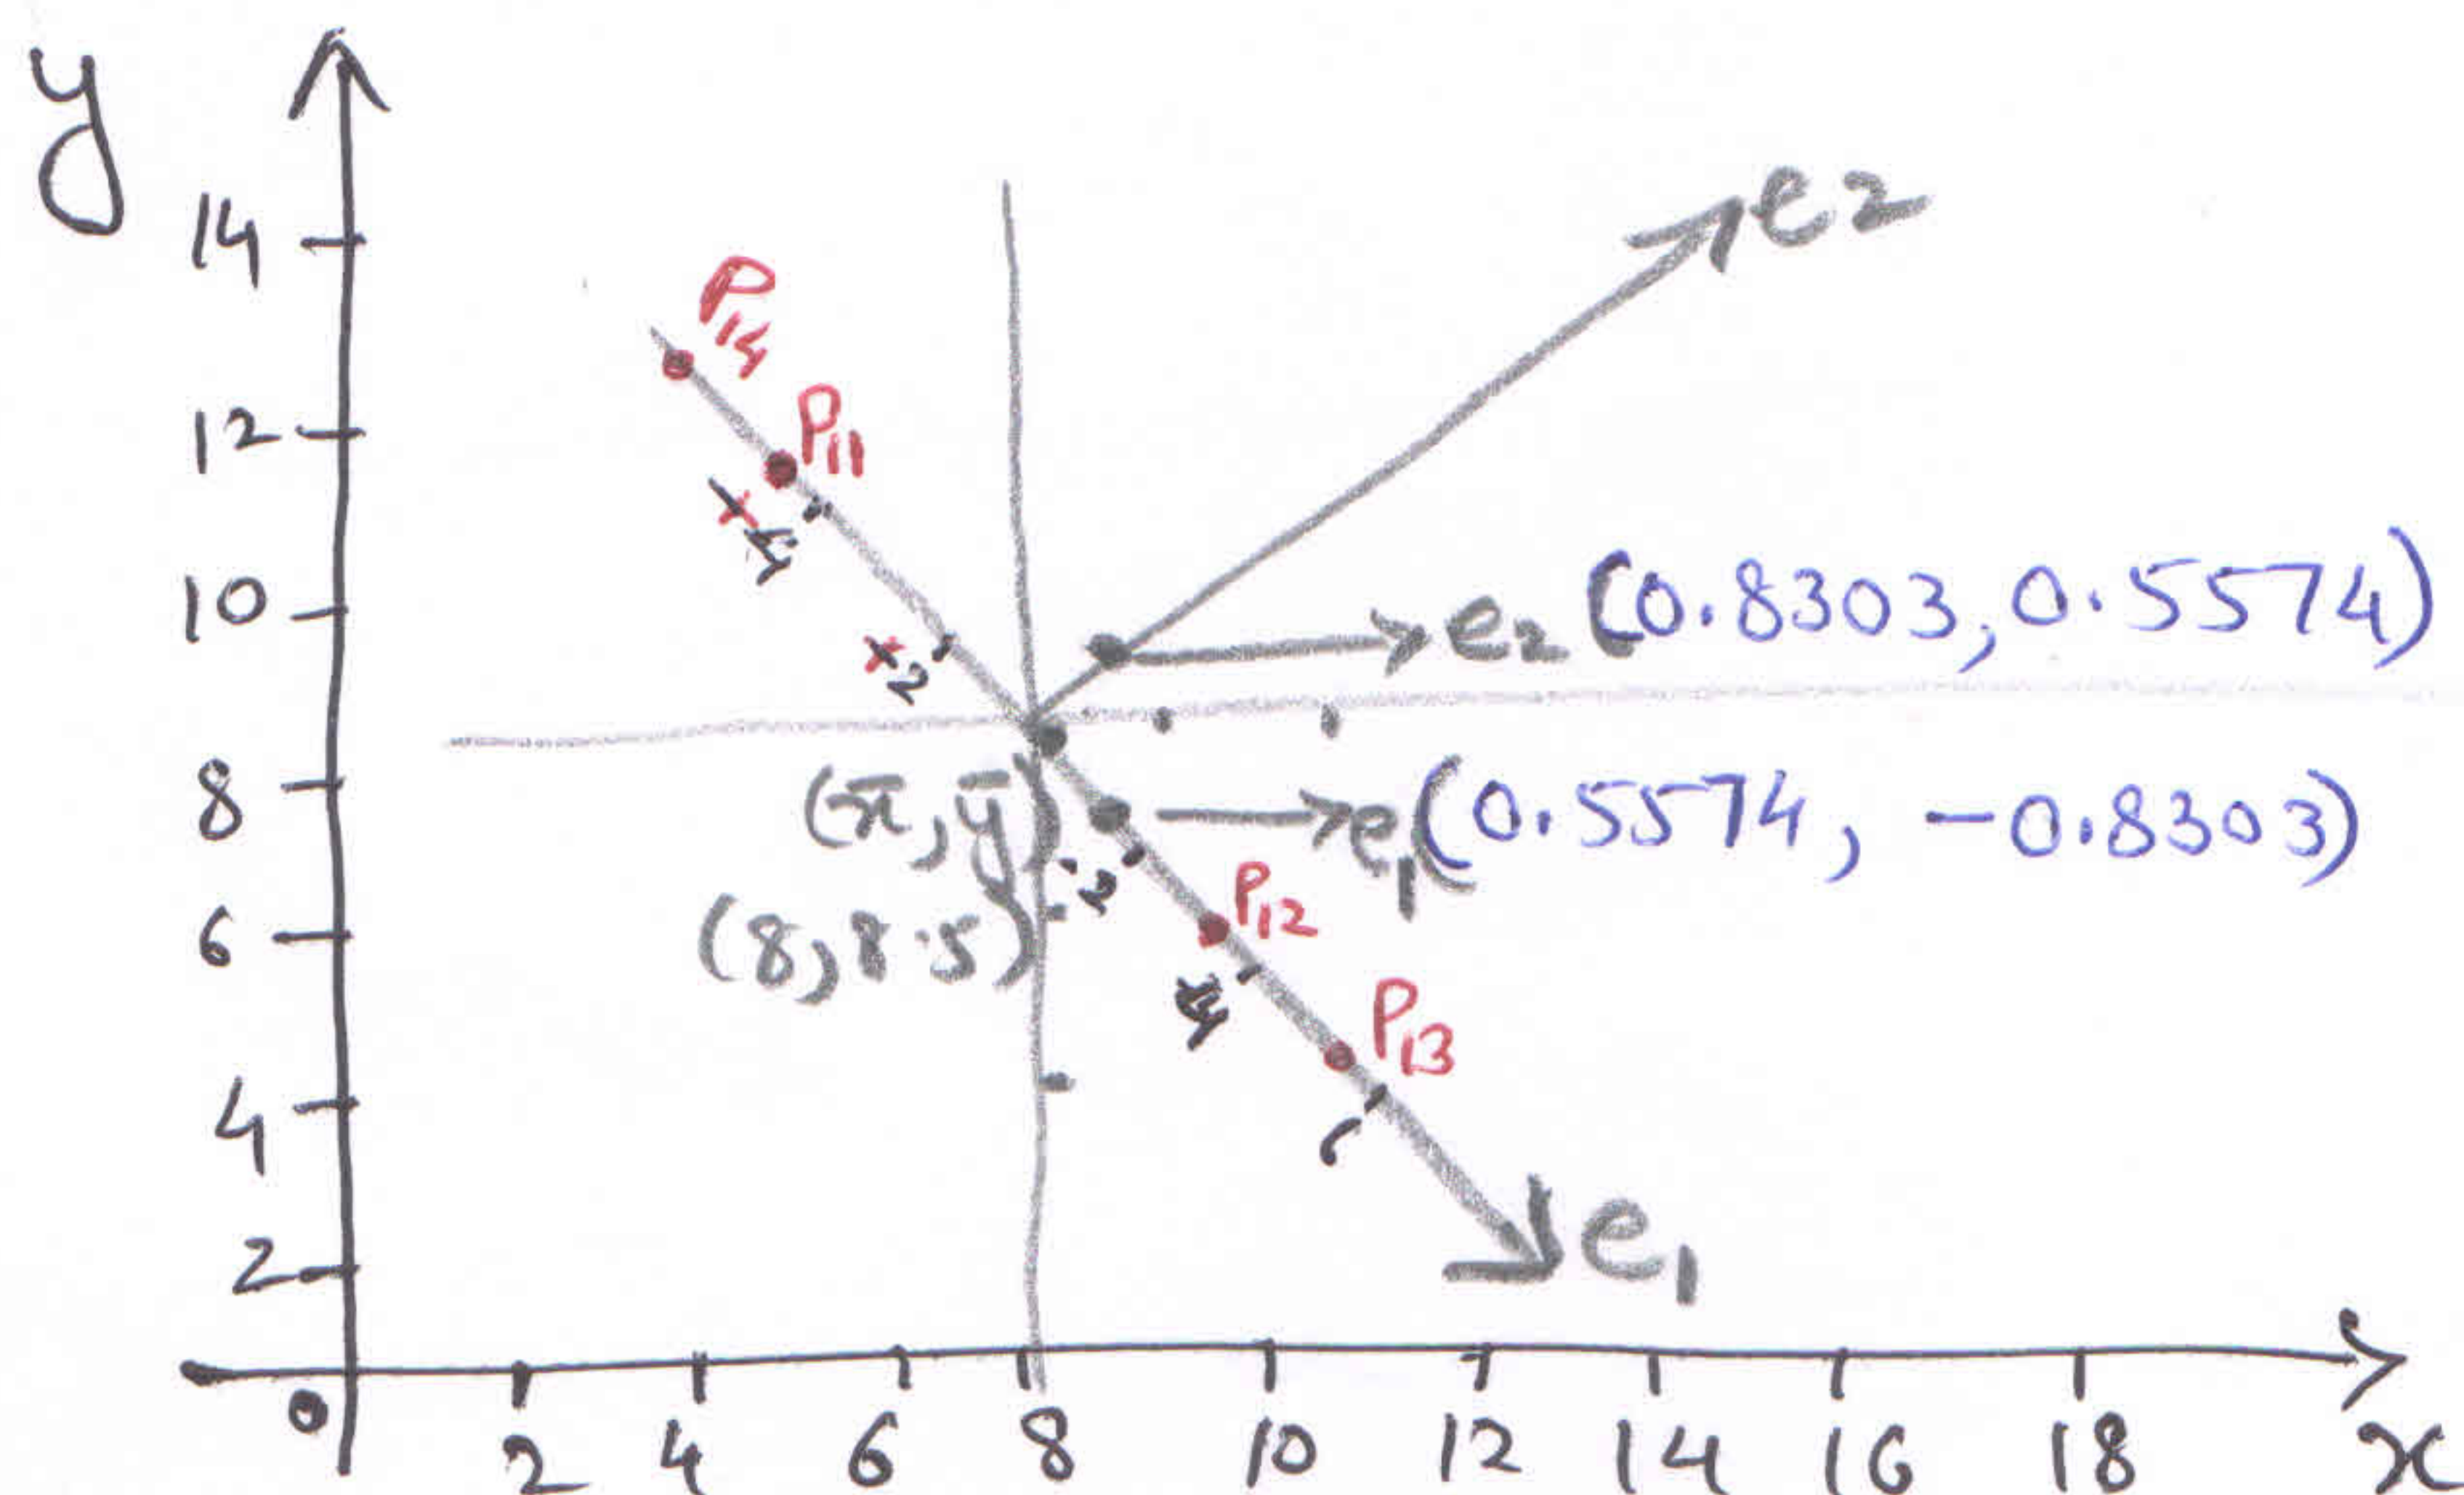 y
14
12
10
8
6
4
2
0
2 4 6 8 10 12 14 16 18 x
P14
P11
-4
-2
e2
e2 (0.8303, 0.5574)
(x̄, ȳ)
(8, 8.5)
e1 (0.5574, -0.8303)
2
P12
4
P13
e1